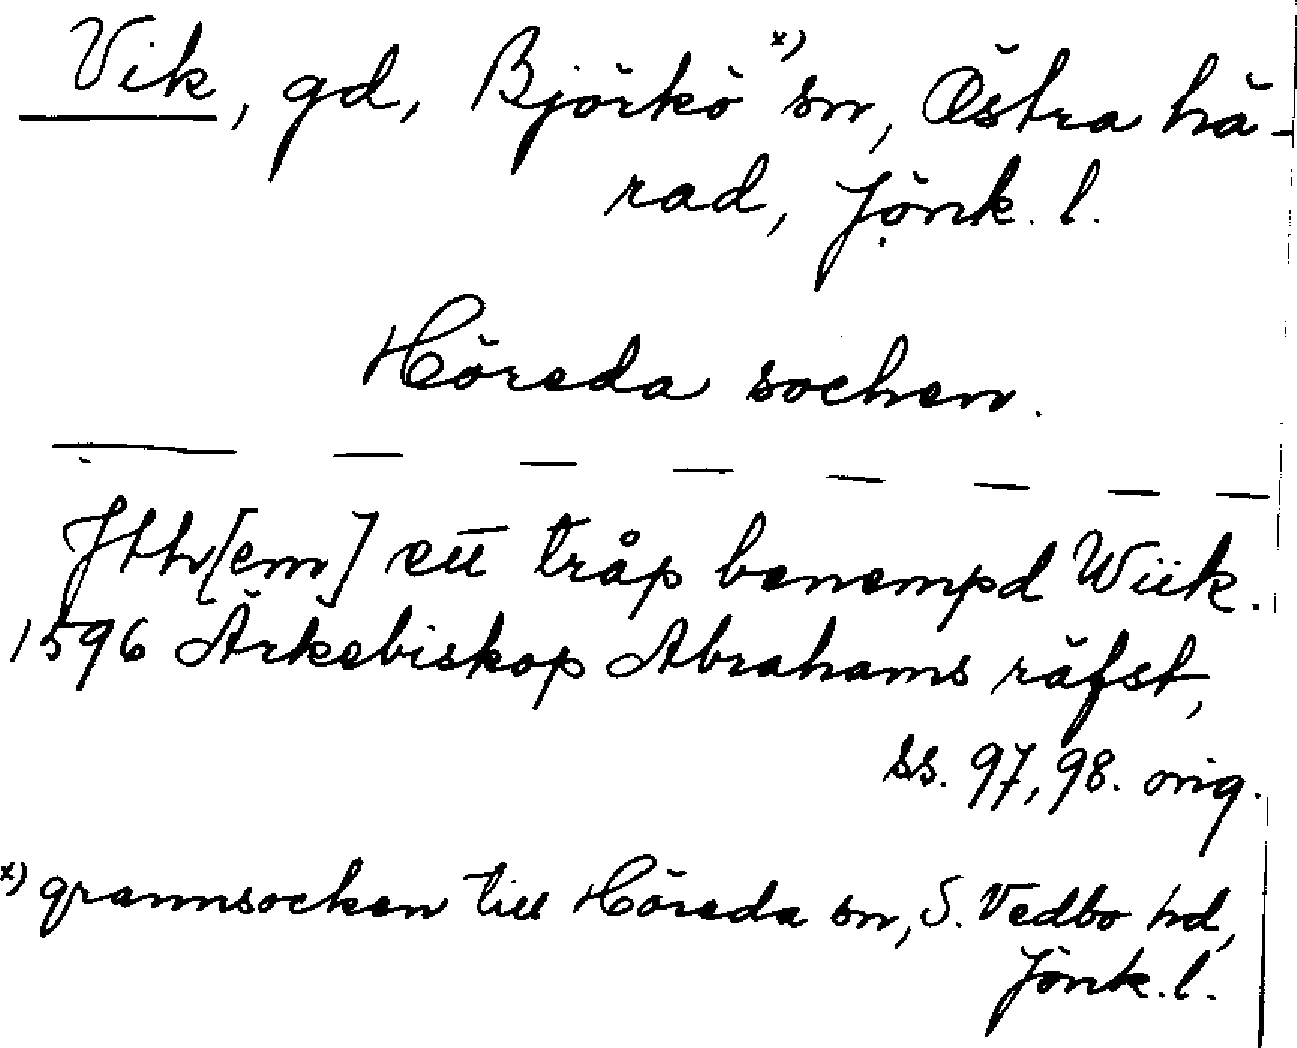 Vik, gd, Björkö x) sn, Östra hä-
rad, Jönk. l.
Höreda sochen.
Jtth[em] ett tråp benempd Wiik.
1596 Ärkebiskop Abrahams räfst,
ss. 97, 98. orig.
x) grannsocken till Höreda sn, S. Vedbo hd,
Jönk. l.